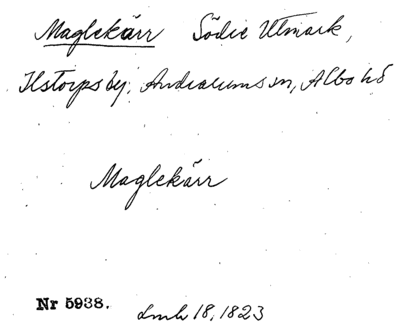 Maglekärr Södre Utmark,
Ilstorps by, Andrarums sn, Albo hd
Maglekärr
Nr 5938. Lmh 18, 1823